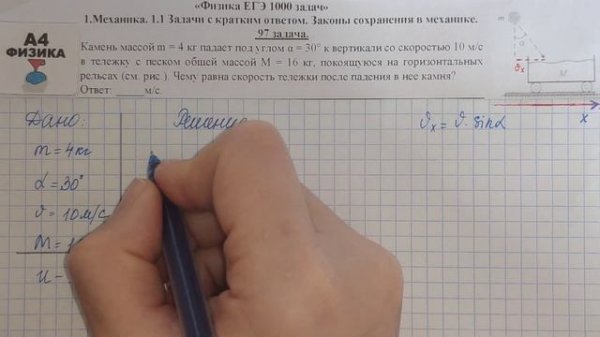 «Физика ЕГЭ 1000 задач»
1.Механика. 1.1 Задачи с кратким ответом. Законы сохранения в механике.
97 задача.
А4
ФИЗИКА
Камень массой m = 4 кг падает под углом α = 30° к вертикали со скоростью 10 м/с
в тележку с песком общей массой M = 16 кг, покоящуюся на горизонтальных
рельсах (см. рис.). Чему равна скорость тележки после падения в нее камня?
Ответ: ______ м/с.
m
α
ϑx
M
x
Дано:
Решение
ϑx = ϑ · sinα
m = 4кг
α = 30°
ϑ = 10м/с
M = 1
u –